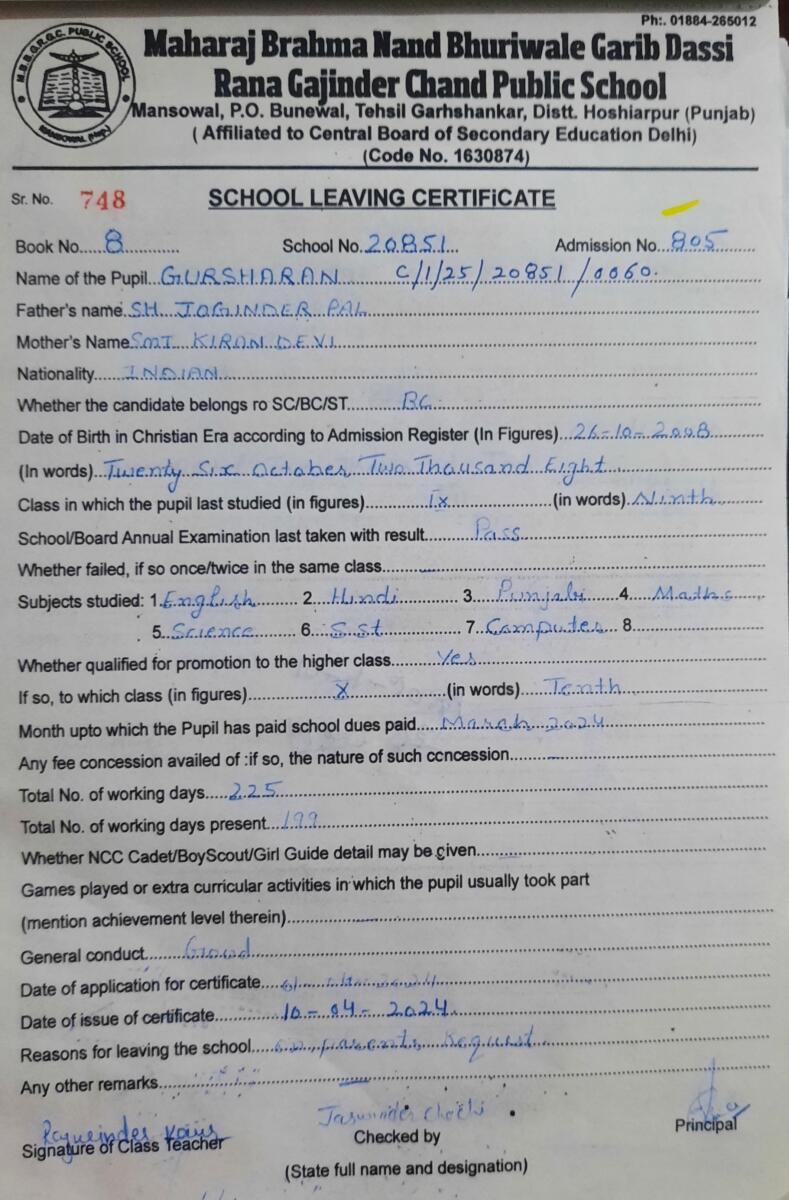 Ph:. 01884-265012
M.B.B.G.R.G.C. PUBLIC SCHOOL
MANSOWAL (Hsp.)
Maharaj Brahma Nand Bhuriwale Garib Dassi
Rana Gajinder Chand Public School
Mansowal, P.O. Bunewal, Tehsil Garhshankar, Distt. Hoshiarpur (Punjab)
( Affiliated to Central Board of Secondary Education Delhi)
(Code No. 1630874)
Sr. No. 748 SCHOOL LEAVING CERTIFiCATE
Book No.....8............ School No.20851... Admission No...805......
Name of the Pupil...GURSHARAN C/1/25/20851/0060.
Father's name.SH. JOGINDER PAL
Mother's Name SMT KIRAN DEVI
Nationality......INDIAN
Whether the candidate belongs ro SC/BC/ST.........BC
Date of Birth in Christian Era according to Admission Register (In Figures)...26-10-2008
(In words)..Twenty Six October Two Thousand Eight
Class in which the pupil last studied (in figures)..........IX..........(in words).Ninth
School/Board Annual Examination last taken with result.......Pass
Whether failed, if so once/twice in the same class.......
Subjects studied: 1.English........ 2...Hindi 3....Punjabi 4....Maths
5..Science........ 6..S.St........ 7.Computer.. 8.........
Whether qualified for promotion to the higher class.......Yes
If so, to which class (in figures)..........X..........(in words)....Tenth
Month upto which the Pupil has paid school dues paid....March 2024
Any fee concession availed of :if so, the nature of such concession.......
Total No. of working days....225
Total No. of working days present...199
Whether NCC Cadet/BoyScout/Girl Guide detail may be given.......
Games played or extra curricular activities in which the pupil usually took part
(mention achievement level therein).......
General conduct.....Good
Date of application for certificate....
Date of issue of certificate........10-04-2024.
Reasons for leaving the school....on parents Request
Any other remarks.......
Signature of Class Teacher
Checked by
Principal
(State full name and designation)